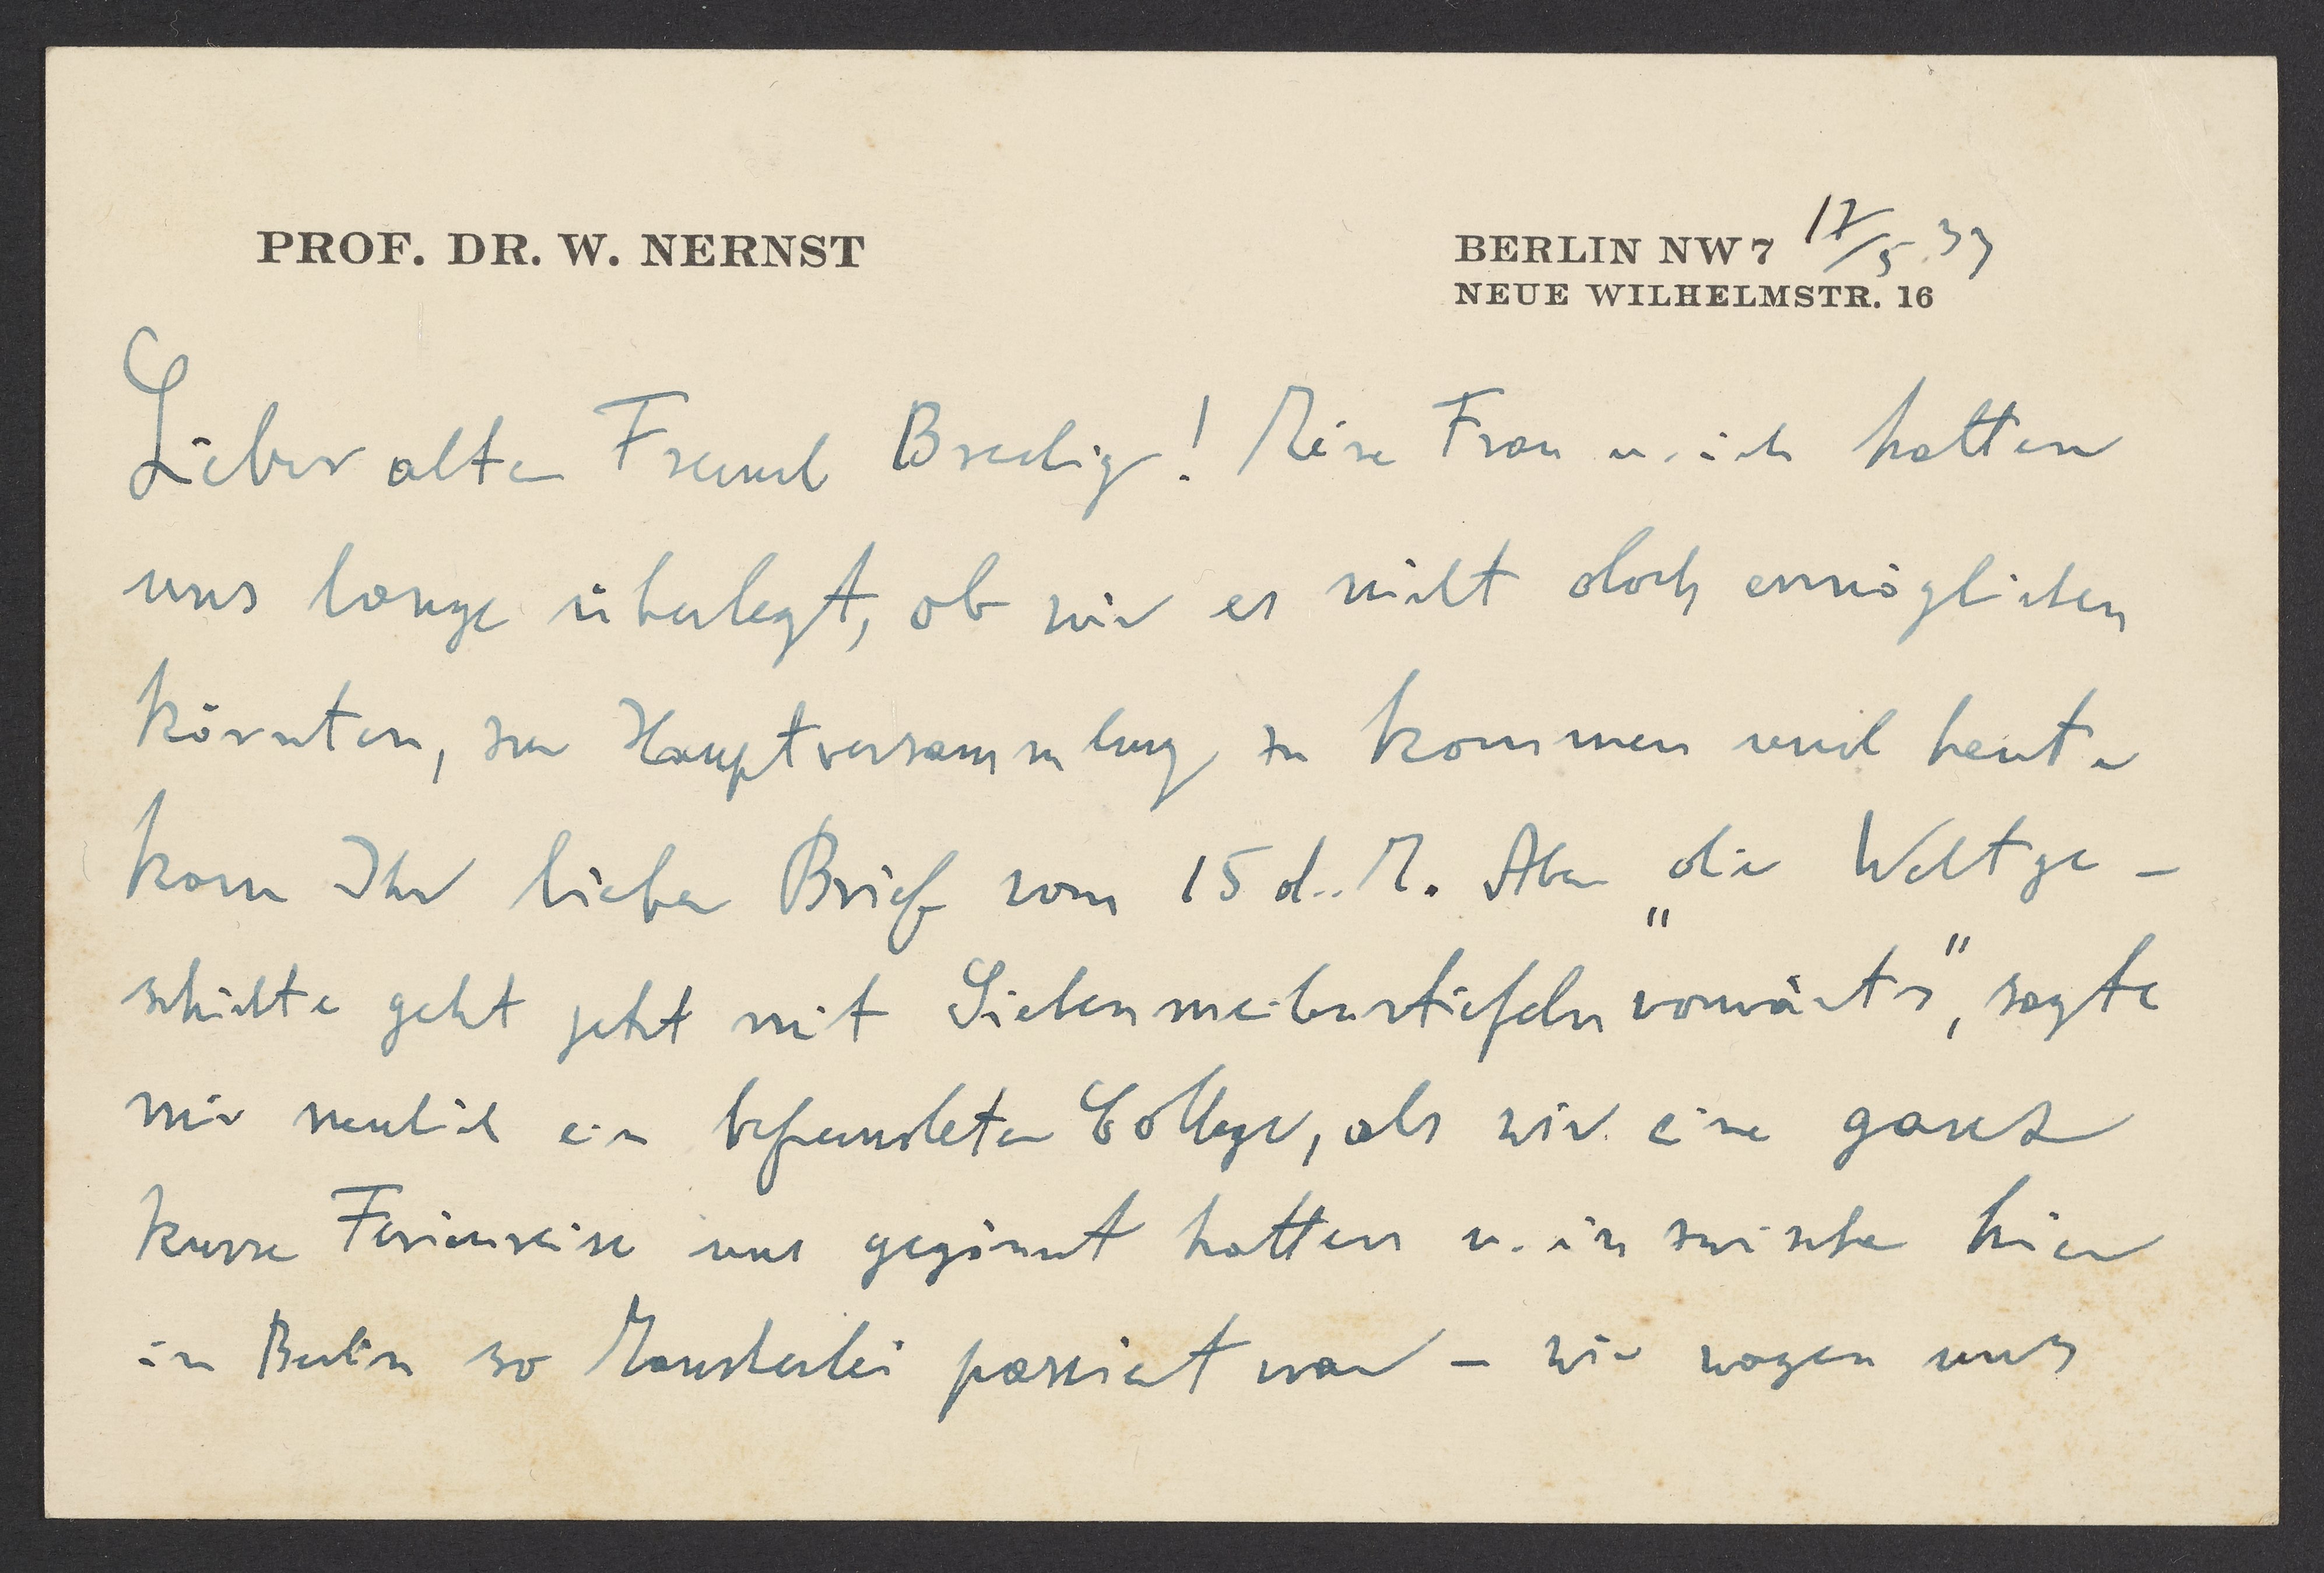 PROF. DR. W. NERNST
BERLIN NW 7 17/5.33
NEUE WILHELMSTR. 16
Lieber alter Freund Bredig! Meine Frau u. ich hatten
uns lange überlegt, ob wir es nicht doch ermöglichen
könnten, zur Hauptversammlung zu kommen und heute
kam Ihr lieber Brief vom 15 d. M. Aber „die Weltge-
schichte geht jetzt mit Siebenmeilenstiefeln vorwärts", sagte
mir neulich ein befreundeter College, als wir eine ganz
kurze Ferienreise uns gegönnt hatten u. inzwischen hier
in Berlin so Mancherlei passiert war – wir wagen uns